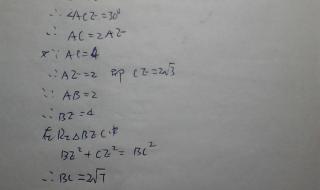 ∴ ∠ACZ=30°
∴ AC=2AZ
又∵ AC=4
∴ AZ=2 即 CZ=2√3
∵ AB=2
∴ BZ=4
在Rt△BZC中
BZ²+CZ²=BC²
∴ BC=2√7